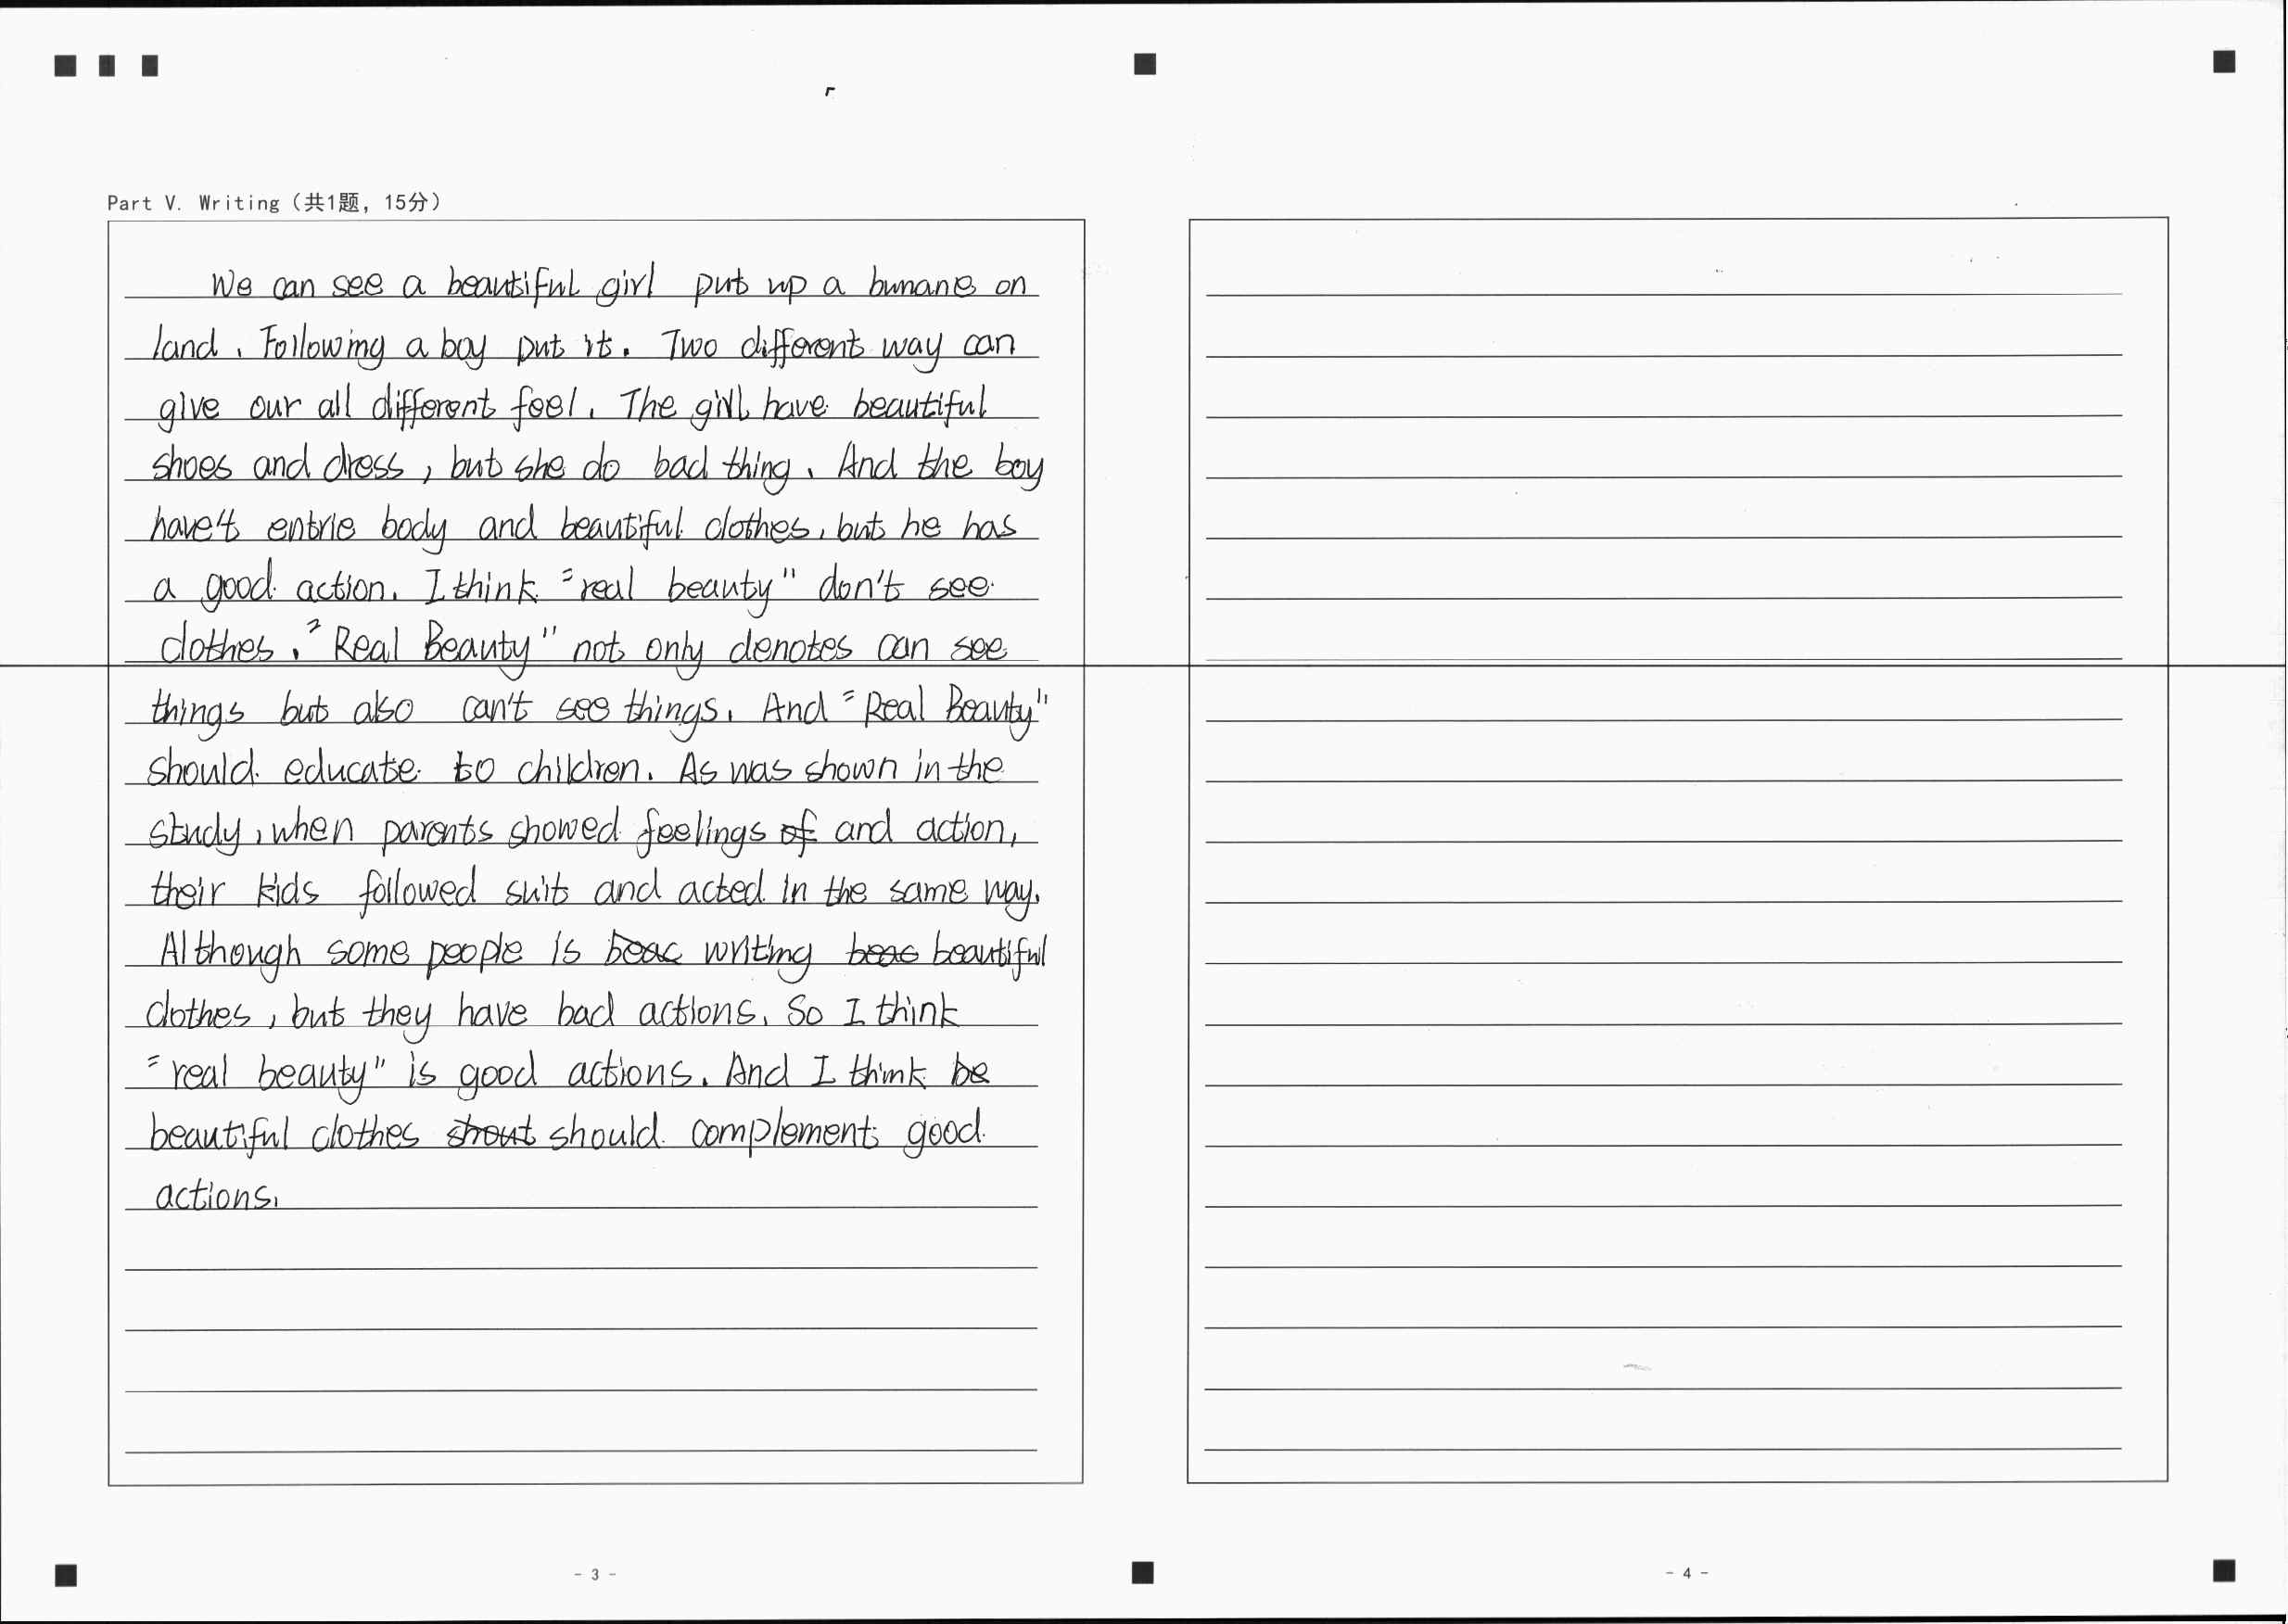 Part V. Writing（共1题，15分）
We can see a beautiful girl put up a bunane on
land. Following a boy put it. Two different way can
give our all different feel. The girl have beautiful
shoes and dress, but she do bad thing. And the boy
have't entrie body and beautiful clothes, but he has
a good action. I think "real beauty" don't see
clothes. "Real Beauty" not only denotes can see
things but also can't see things. And "Real Beauty"
should educate to children. As was shown in the
study, when parents showed feelings of and action,
their kids followed suit and acted in the same way.
Although some people is beac writing beac beautiful
clothes, but they have bad actions. So I think
"real beauty" is good actions. And I think be
beautiful clothes shout should complement good
actions.
- 3 -
- 4 -